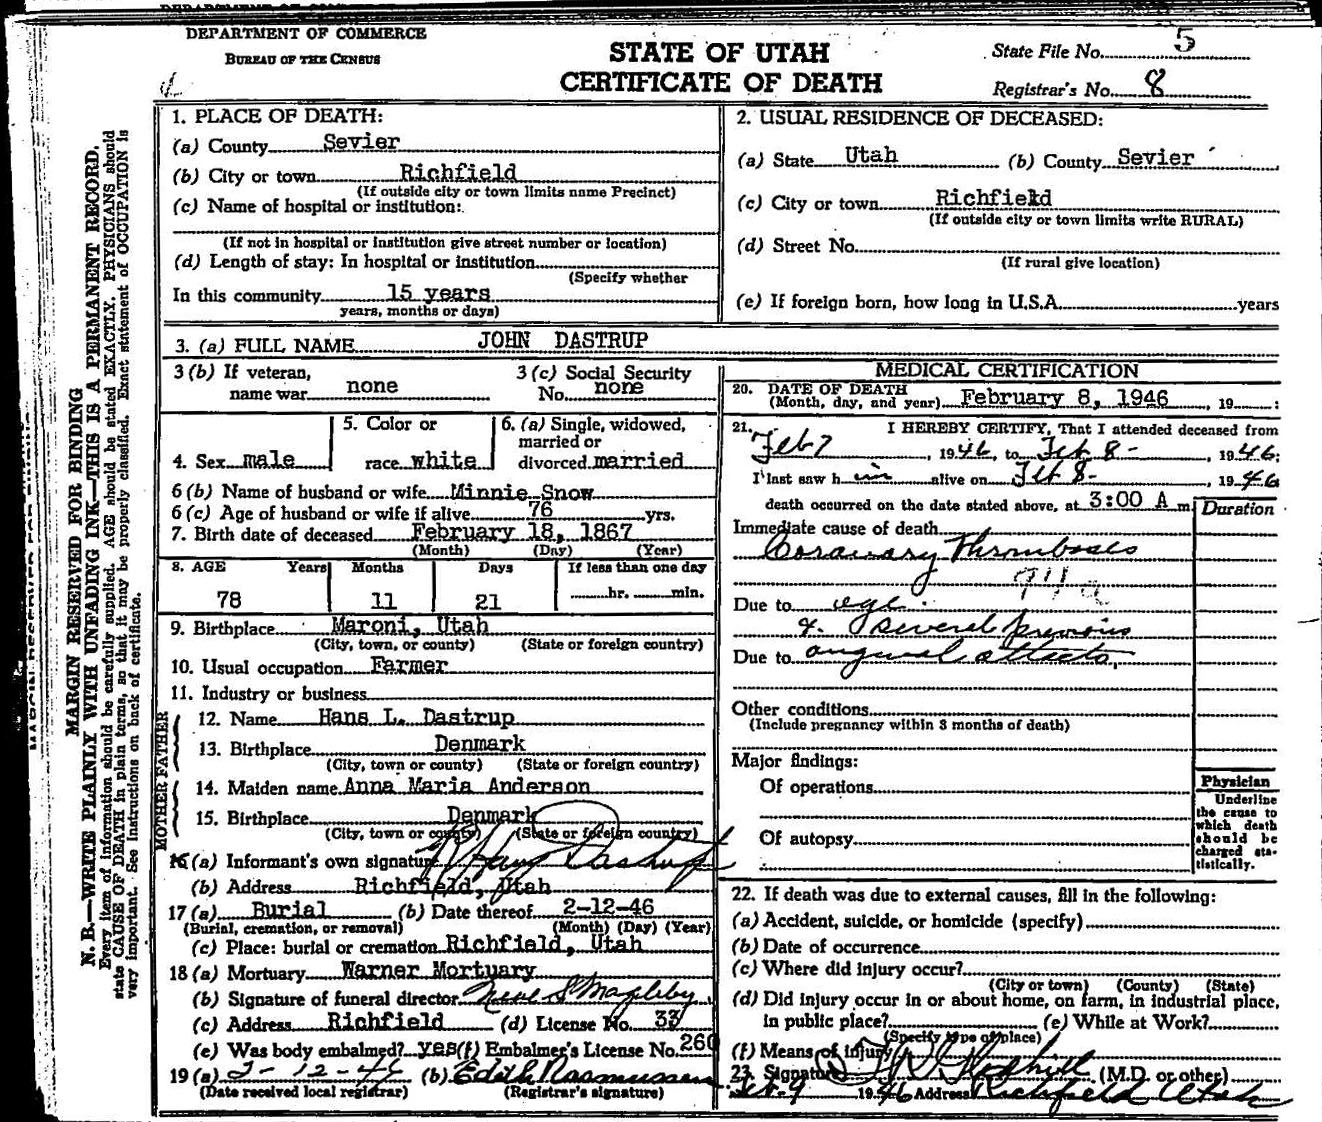 DEPARTMENT OF COMMERCE
BUREAU OF THE CENSUS
STATE OF UTAH
CERTIFICATE OF DEATH
State File No. 5
Registrar's No. 8
MARGIN RESERVED FOR BINDING
N. B.—WRITE PLAINLY WITH UNFADING INK—THIS IS A PERMANENT RECORD.
Every item of information should be carefully supplied. AGE should be stated EXACTLY. PHYSICIANS should
state CAUSE OF DEATH in plain terms, so that it may be properly classified. Exact statement of OCCUPATION is
very important. See instructions on back of certificate.
1. PLACE OF DEATH:
(a) County Sevier
(b) City or town Richfield
(If outside city or town limits name Precinct)
(c) Name of hospital or institution:
(If not in hospital or institution give street number or location)
(d) Length of stay: In hospital or institution
(Specify whether
In this community 15 years
years, months or days)
2. USUAL RESIDENCE OF DECEASED:
(a) State Utah (b) County Sevier
(c) City or town Richfield
(If outside city or town limits write RURAL)
(d) Street No.
(If rural give location)
(e) If foreign born, how long in U.S.A. years
3. (a) FULL NAME JOHN DASTRUP
3 (b) If veteran,
name war none
3 (c) Social Security
No. none
4. Sex male
5. Color or
race white
6. (a) Single, widowed,
married or
divorced married
6 (b) Name of husband or wife Minnie Snow
6 (c) Age of husband or wife if alive 76 yrs.
7. Birth date of deceased February 18, 1867
(Month) (Day) (Year)
8. AGE Years Months Days If less than one day
78 11 21 hr. min.
9. Birthplace Maroni, Utah
(City, town, or county) (State or foreign country)
10. Usual occupation Farmer
11. Industry or business
FATHER
12. Name Hans L. Dastrup
13. Birthplace Denmark
(City, town or county) (State or foreign country)
MOTHER
14. Maiden name Anna Maria Anderson
15. Birthplace Denmark
(City, town or county) (State or foreign country)
16 (a) Informant's own signature Dastrup
(b) Address Richfield, Utah
17 (a) Burial (b) Date thereof 2-12-46
(Burial, cremation, or removal) (Month) (Day) (Year)
(c) Place: burial or cremation Richfield, Utah
18 (a) Mortuary Warner Mortuary
(b) Signature of funeral director Neal S Magleby
(c) Address Richfield (d) License No. 33
(e) Was body embalmed? yes (f) Embalmer's License No. 260
19 (a) 2-12-46 (b) Edith Rasmussen
(Date received local registrar) (Registrar's signature)
MEDICAL CERTIFICATION
20. DATE OF DEATH
(Month, day, and year) February 8, 1946, 19 :
21. I HEREBY CERTIFY, That I attended deceased from
Feb 7, 1946, to Feb 8-, 1946;
I last saw h im alive on Feb 8-, 1946
death occurred on the date stated above, at 3:00 A m.
Duration
Immediate cause of death
Coronary Thrombosis
Due to age.
& several previous
Due to anginal attacks,
Other conditions
(Include pregnancy within 3 months of death)
Major findings:
Of operations
Of autopsy
Physician
Underline
the cause to
which death
should be
charged sta-
tistically.
22. If death was due to external causes, fill in the following:
(a) Accident, suicide, or homicide (specify)
(b) Date of occurrence
(c) Where did injury occur?
(City or town) (County) (State)
(d) Did injury occur in or about home, on farm, in industrial place,
in public place? (e) While at Work?
(Specify type of place)
(f) Means of injury
23. Signature (M.D. or other)
Feb-9 1946 Address Richfield Utah